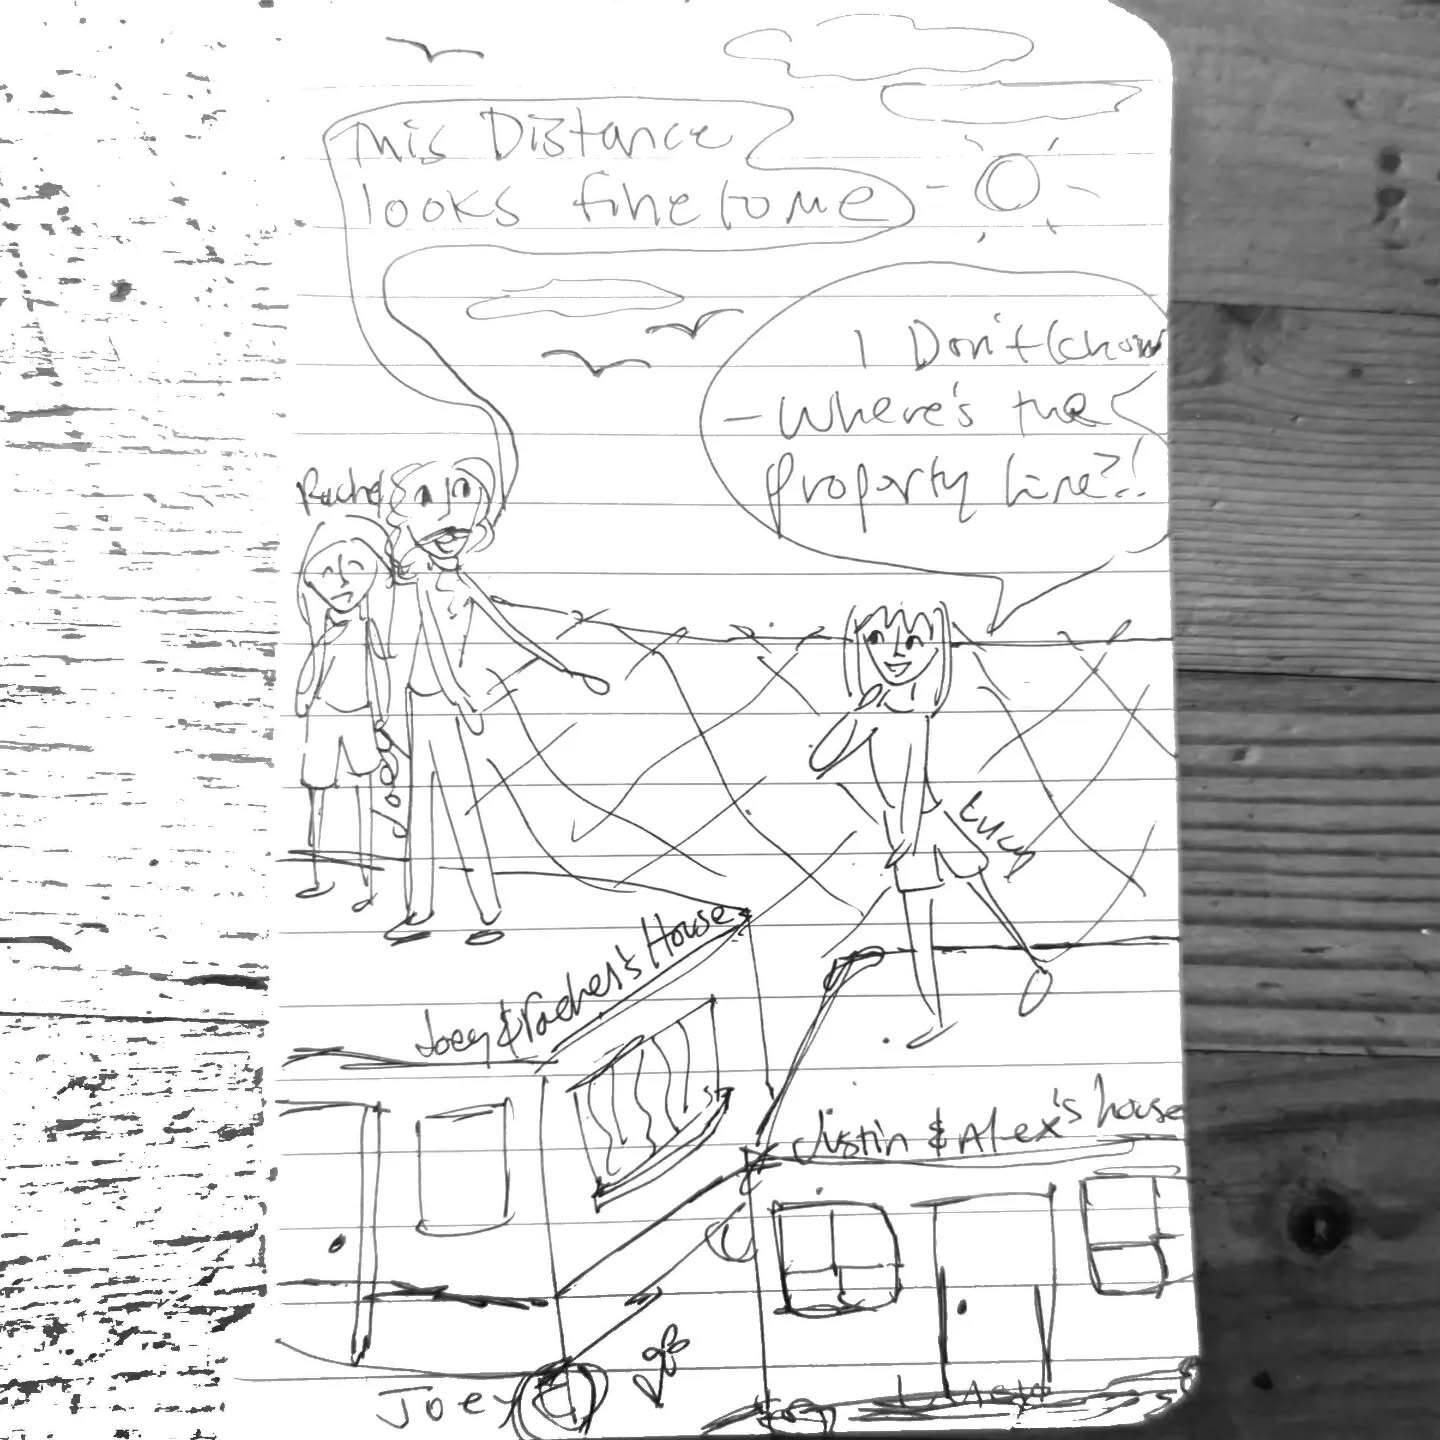 This Distance
looks fine to me
I Don't know
- Where's the
property line?!
Rachel
Joey
Lucy
Joey & Rachel's House
Justin & Alex's house
Joey